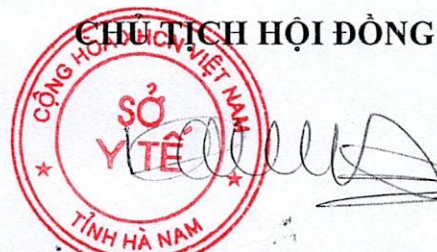 CHỦ TỊCH HỘI ĐỒNG
CỘNG HÒA XHCN VIỆT NAM
SỞ
Y TẾ
TỈNH HÀ NAM